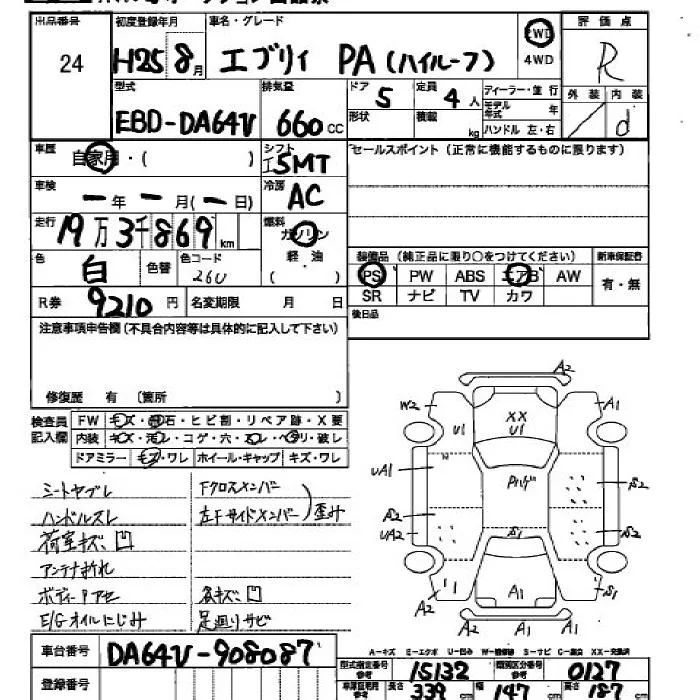 出品番号
24
初度登録年月
H25 8月
車名・グレード
エブリィ PA(ハイルーフ)
2WD
4WD
評価点
R
型式
EBD-DA64V
排気量
660 cc
ドア 5
定員 4 人
形状
積載 kg
ディーラー・並行
モデル年式 年
ハンドル 左・右
外装 内装
d
車歴
自家用・( )
シフト
I5MT
セールスポイント(正常に機能するものに限ります)
車検
ー年ー月(ー日)
冷房
AC
走行
19万3千869km
燃料
ガソリン
軽油
( )
色
白
色替
色コード
26U
装備品(純正品に限り○をつけてください)
新車保証書
PS PW ABS エアB AW
有・無
SR ナビ TV カワ
R券
9210円
名変期限 月 日
後日品
注意事項申告欄(不具合内容等は具体的に記入して下さい)
修復歴 有 〔箇所 〕
検査員記入欄
FW キズ・飛石・ヒビ割・リペア跡・X要
内装 キズ・汚レ・コゲ・穴・スレ・ヘタリ・破レ
ドアミラー キズ・ワレ ホイール・キャップ キズ・ワレ
シートヤブレ
ハンドルスレ
荷室キズ凹
アンテナ折れ
ボディー下アセ
E/Gオイルにじみ
Fクロスメンバー
左Fサイドメンバー
歪み
各キズ凹
足廻りサビ
A2
W2
A1
U1
XX
U1
W
UA1
S2
A2
UA2
S2
S1
A1
S1
A2
A2
A1
A2
A-キズ E-エクボ U-凹み W-補修跡 S-サビ C-腐食 XX-交換済
車台番号
DA64V-908087
登録番号
型式指定番号
参考
15132
類別区分番号
参考
0127
車庫証明用
参考
長さ 339 cm 幅 147 cm 高さ 187 cm